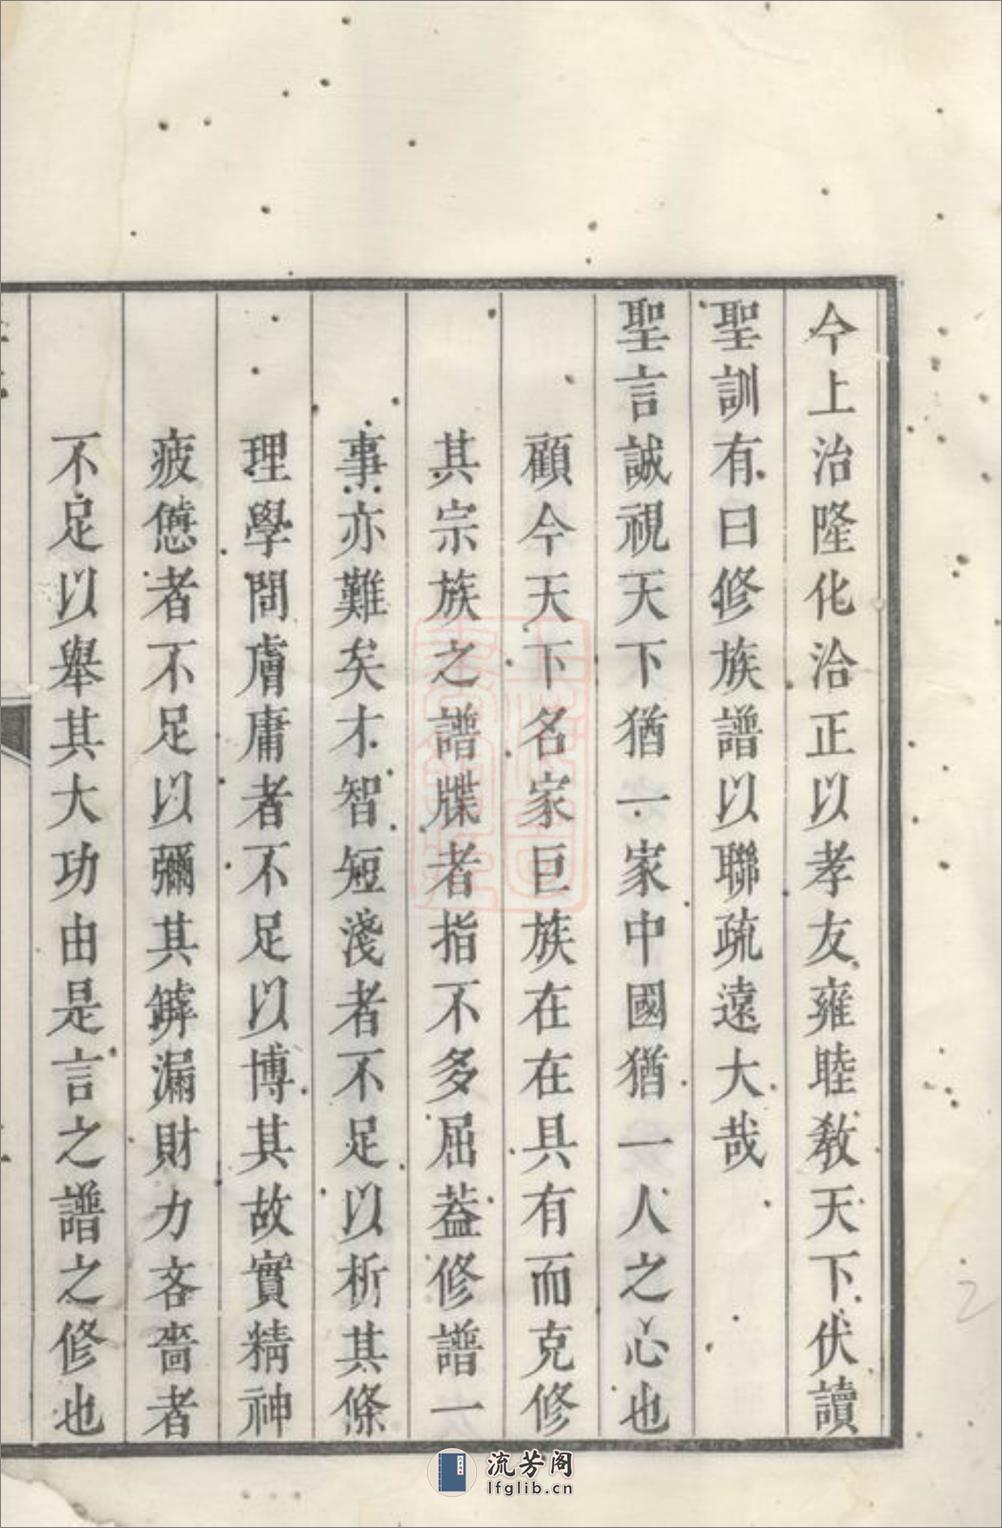 今上治隆化洽正以孝友雍睦敎天下伏讀
聖訓有曰修族譜以聯疏遠大哉
聖言誠視天下猶一家中國猶一人之心也
顧今天下名家巨族在在具有而克修
其宗族之譜牒者指不多屈葢修譜一
事亦難矣才智短淺者不足以析其條
理學問膚庸者不足以博其故實精神
疲憊者不足以彌其罅漏財力吝嗇者
不足以舉其大功由是言之譜之修也
流芳阁
lfglib.cn